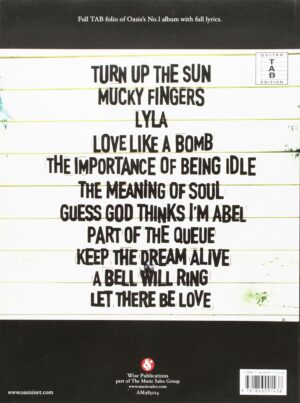 Full TAB folio of Oasis's No.1 album with full lyrics.
GUITAR
TAB
EDITION
TURN UP THE SUN
MUCKY FINGERS
LYLA
LOVE LIKE A BOMB
THE IMPORTANCE OF BEING IDLE
THE MEANING OF SOUL
GUESS GOD THINKS I'M ABEL
PART OF THE QUEUE
KEEP THE DREAM ALIVE
A BELL WILL RING
LET THERE BE LOVE
Wise Publications
part of The Music Sales Group
www.musicsales.com
www.oasisinet.com
AM983024